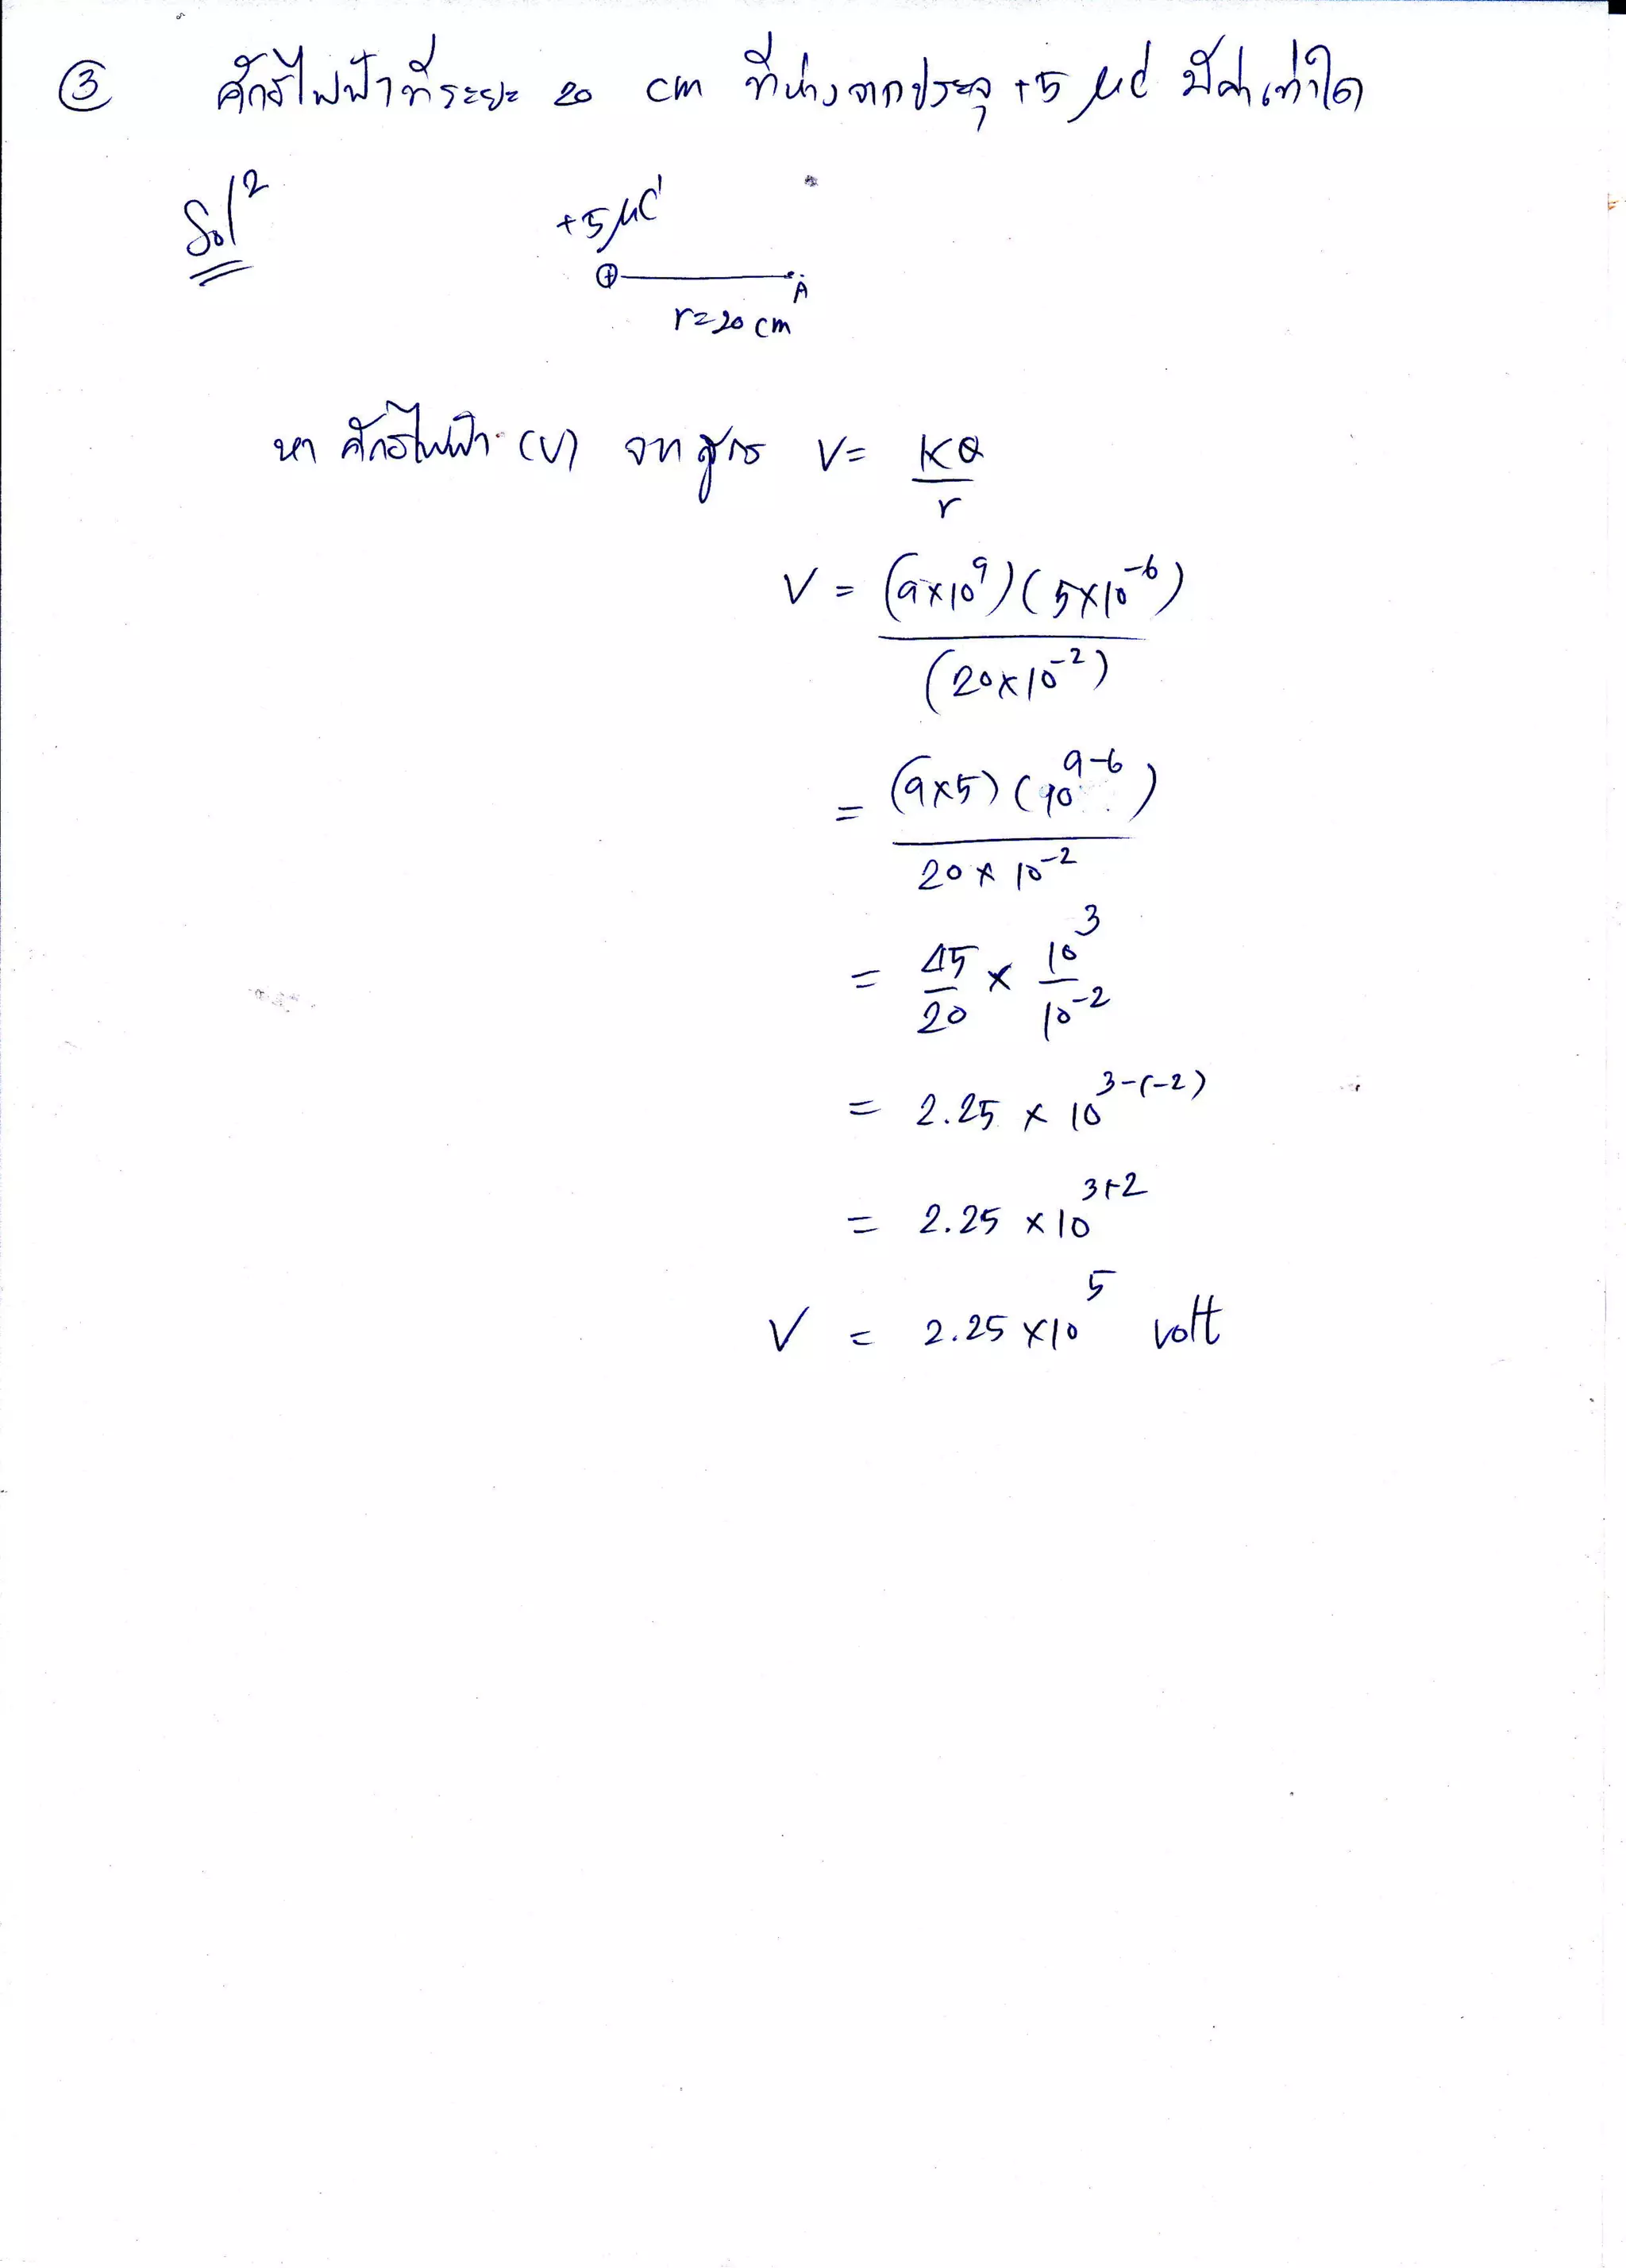 ③ ศักย์ไฟฟ้าที่ระยะ 20 cm ที่ห่างจากประจุ +5 μC มีค่าเท่าใด
Solⁿ
+5 μC
⊕ A
r = 20 cm
หา ศักย์ไฟฟ้า (V) จาก สูตร V = KQ / r
V = (9×10⁹)(5×10⁻⁶) / (20×10⁻²)
= (9×5)(10⁹⁻⁶) / 20×10⁻²
= 45/20 × 10³/10⁻²
= 2.25 × 10³⁻⁽⁻²⁾
= 2.25 ×10³⁺²
V = 2.25 ×10⁵ volt